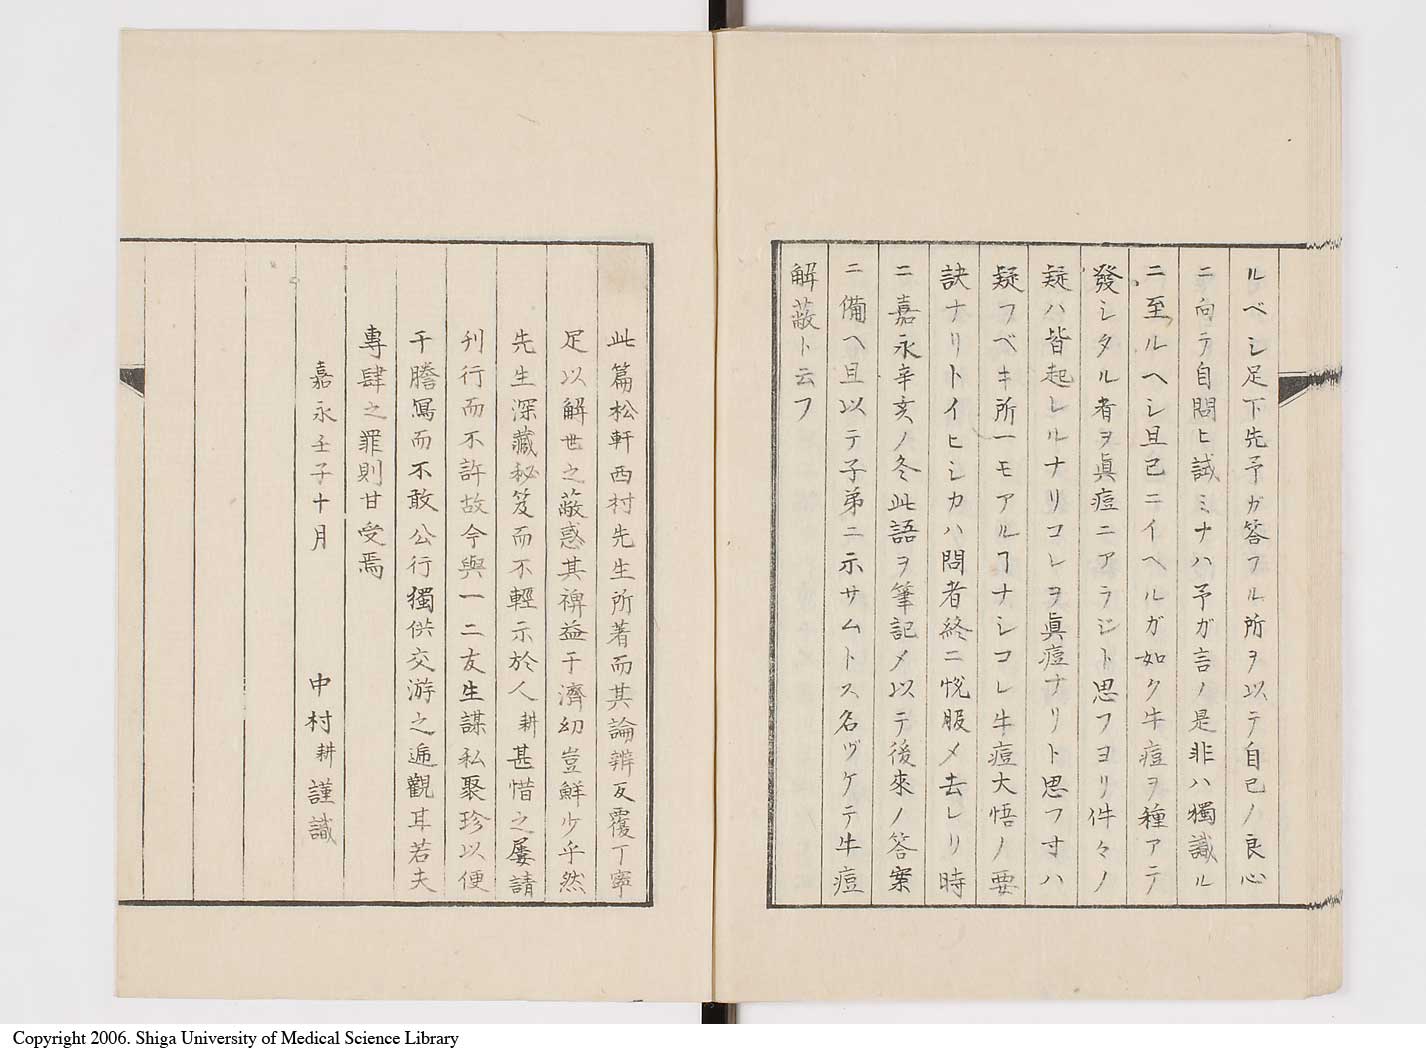 ルベシ足下先予ガ答フル所ヲ以テ自己ノ良心
ニ向テ自問ヒ試ミナハ予ガ言ノ是非ハ獨識ル
ニ至ルヘシ且已ニイヘルガ如ク牛痘ヲ種アテ
發シタル者ヲ眞痘ニアラジト思フヨリ件々ノ
疑ハ皆起レルナリコレヲ眞痘ナリト思フ寸ハ
疑フベキ所一モアルヿナシコレ牛痘大悟ノ要
訣ナリトイヒシカハ問者終ニ悦服メ去レリ時
ニ嘉永辛亥ノ冬此語ヲ筆記メ以テ後來ノ答案
ニ備ヘ且以テ子弟ニ示サムトス名ヅケテ牛痘
解蔽ト云フ
此篇松軒西村先生所著而其論辨反覆丁寧
足以解世之蔽惑其裨益于濟幼豈鮮少乎然
先生深藏秘笈而不輕示於人耕甚惜之屢請
刊行而不許故今與一二友生謀私聚珍以便
于謄寫而不敢公行獨供交游之遍觀耳若夫
專肆之罪則甘受焉
嘉永壬子十月
中村耕謹識
Copyright 2006. Shiga University of Medical Science Library